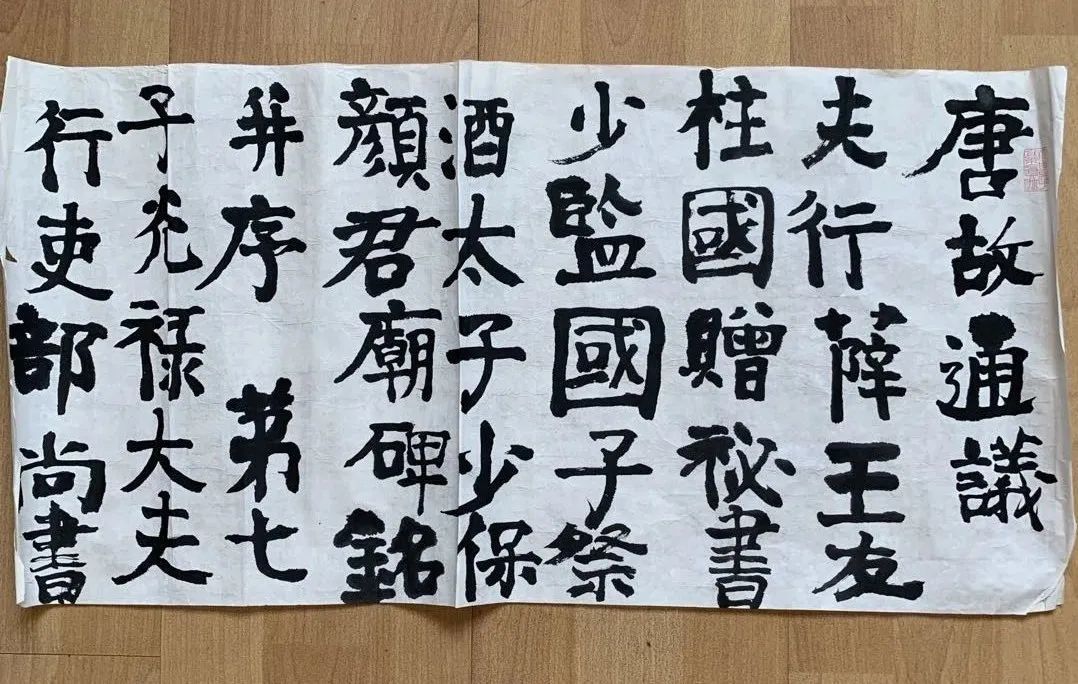 唐故通議
夫行薛王友
柱國贈祕書
少監國子祭
酒太子少保
顏君廟碑銘
并序 第七
子光禄大夫
行吏部尚書